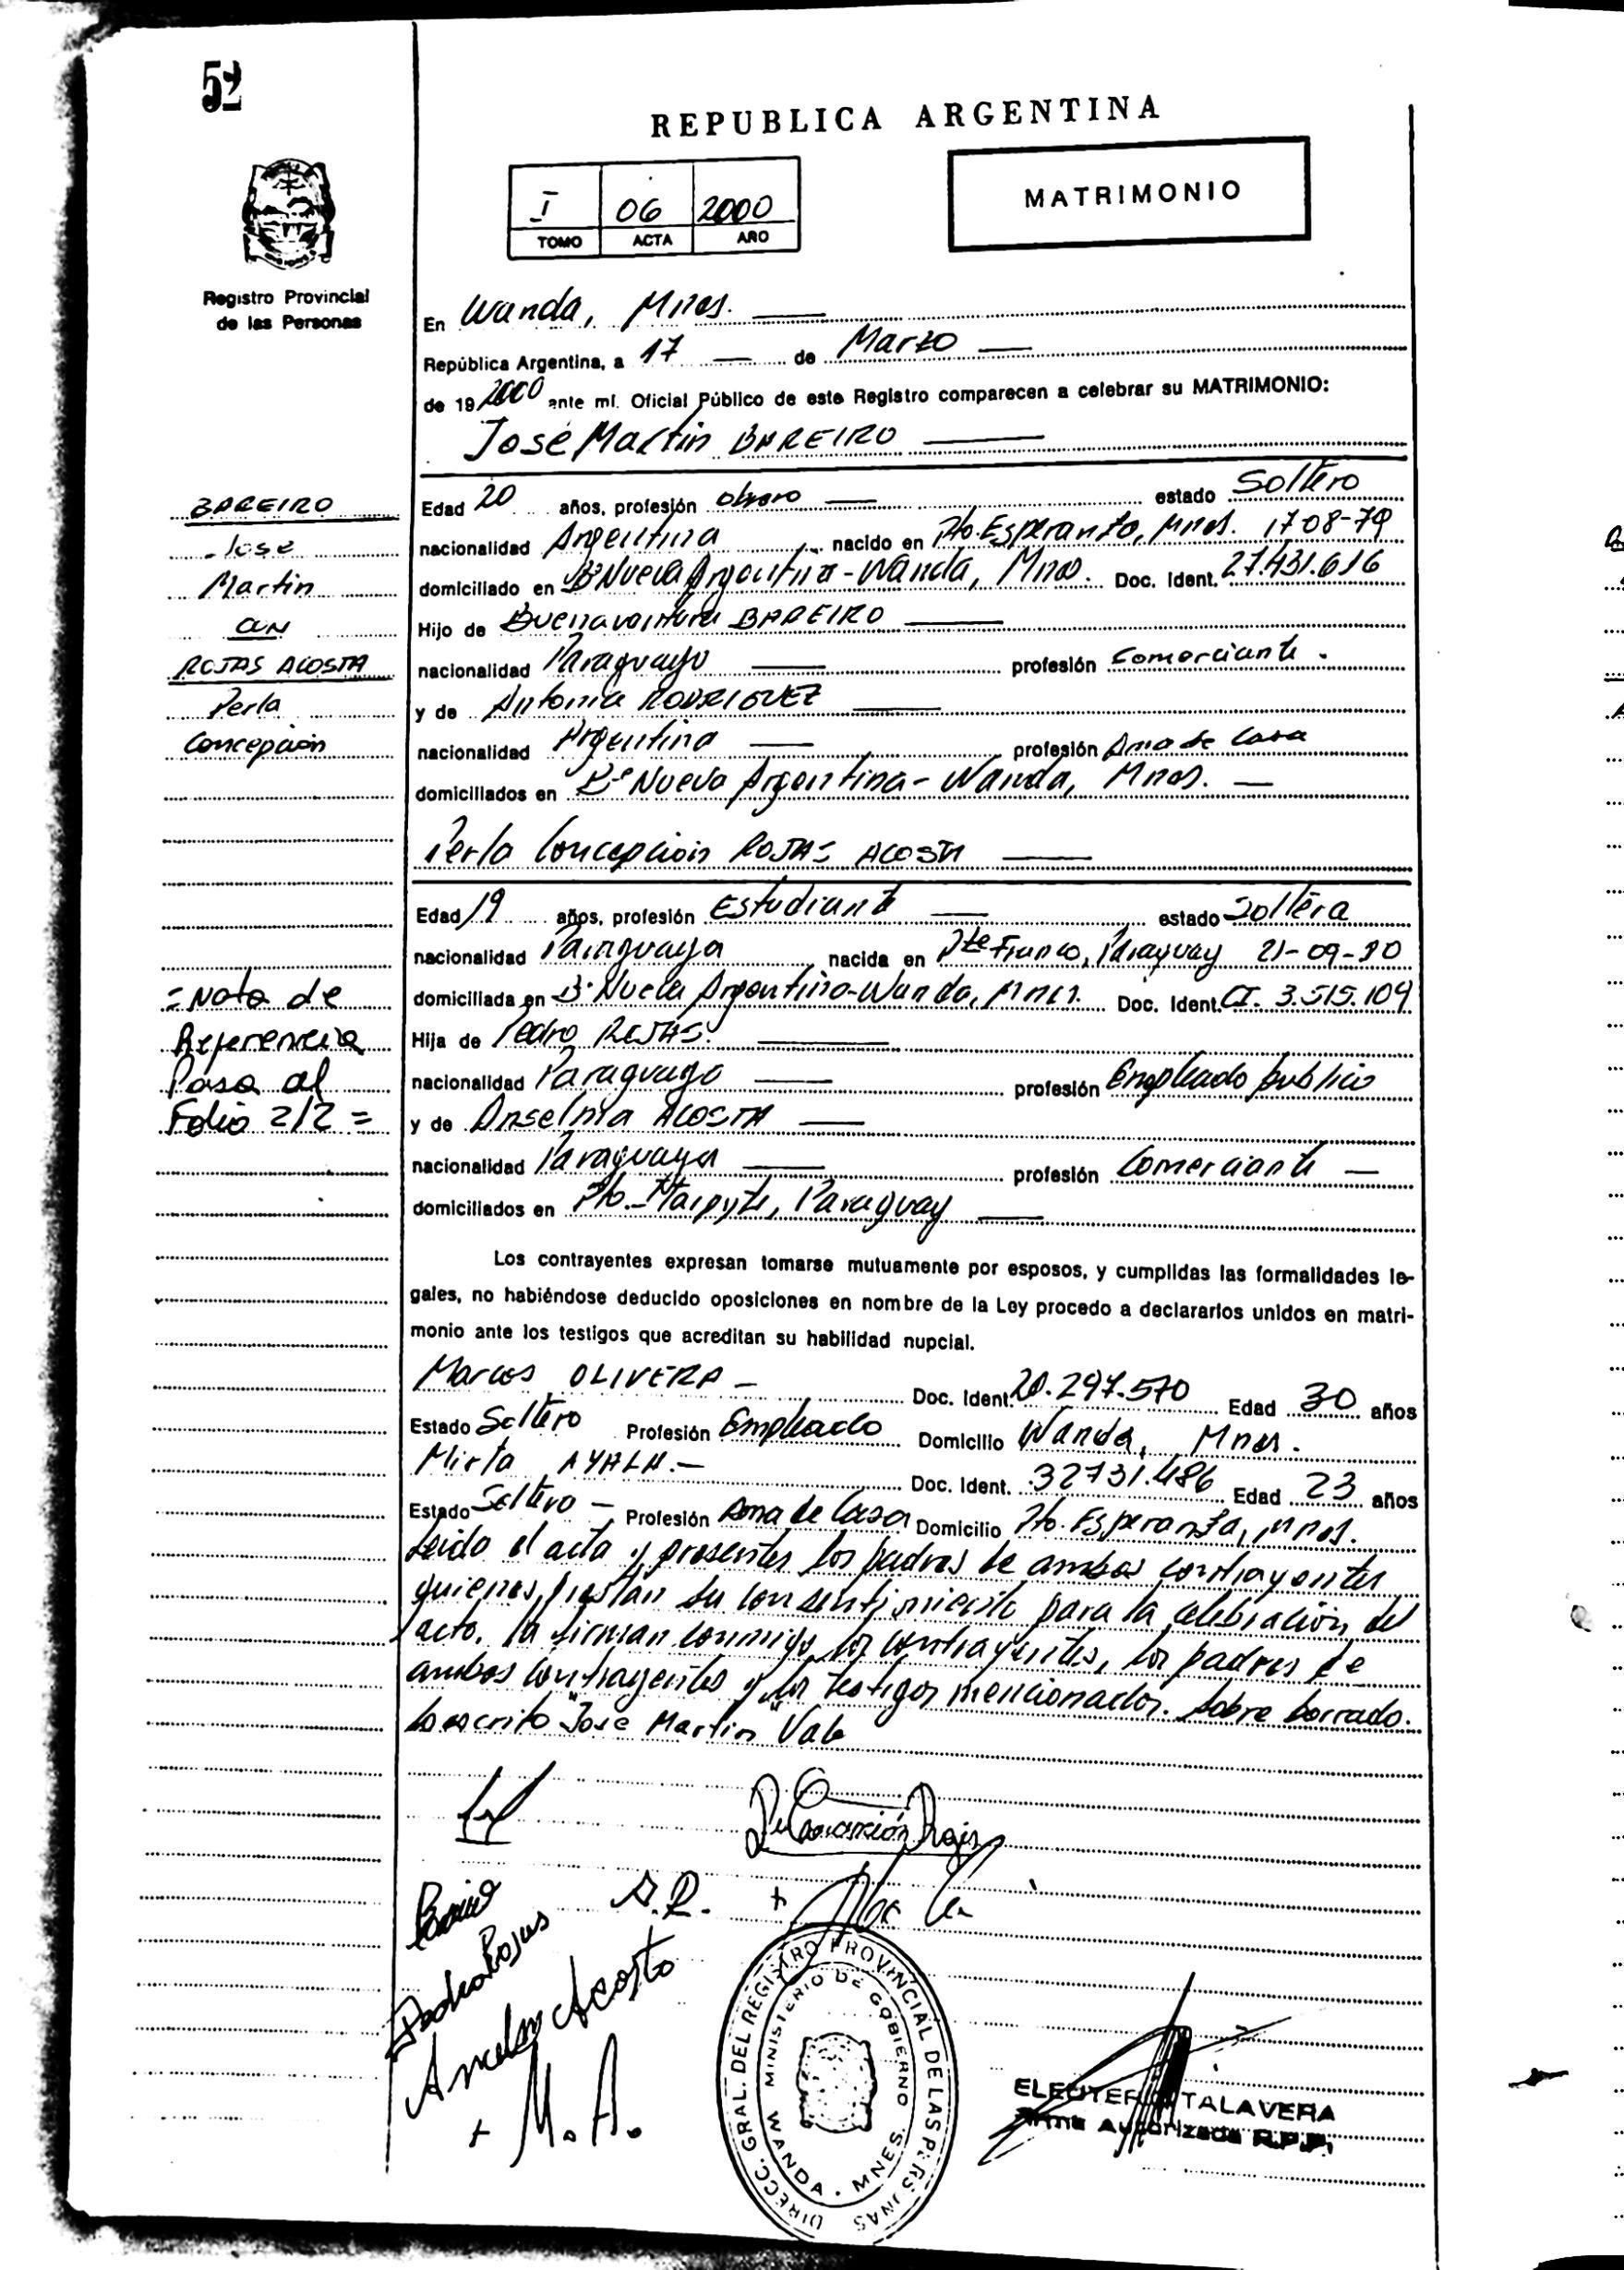 52
REPUBLICA ARGENTINA
I 06 2000
TOMO ACTA AÑO
MATRIMONIO
Registro Provincial
de las Personas
En Wanda, Mnes.
República Argentina, a 17 de Marzo
de 19 2000 ante mí. Oficial Público de este Registro comparecen a celebrar su MATRIMONIO:
José Martin BAREIRO
BAREIRO
José
Martin
CON
ROJAS ACOSTA
Perla
Concepción
Edad 20 años, profesión obrero estado Soltero
nacionalidad Argentina nacido en Pto. Esperanza, Mnes. 17-08-79
domiciliado en Bº Nueva Argentina-Wanda, Mnes. Doc. Ident. 27.431.616
Hijo de Buenaventura BAREIRO
nacionalidad Paraguayo profesión Comerciante.
y de Antonia RODRIGUEZ
nacionalidad Argentina profesión Ama de Casa
domiciliados en Bº Nueva Argentina-Wanda, Mnes.
Perla Concepción ROJAS ACOSTA
Edad 19 años, profesión Estudiante estado Soltera
nacionalidad Paraguaya nacida en Pte Franco, Paraguay 21-09-80
domiciliada en Bº Nueva Argentina-Wanda, Mnes. Doc. Ident. CI. 3.515.109
Hija de Pedro ROJAS.
nacionalidad Paraguayo profesión Empleado publico
y de Anselma ACOSTA
nacionalidad Paraguaya profesión Comerciante
domiciliados en Pto. Paraguay
=Nota de
Referencia
Pasa al
Folio 212=
Los contrayentes expresan tomarse mutuamente por esposos, y cumplidas las formalidades le-
gales, no habiéndose deducido oposiciones en nombre de la Ley procedo a declararlos unidos en matri-
monio ante los testigos que acreditan su habilidad nupcial.
Marcos OLIVERA - Doc. Ident. 20.297.570 Edad 30 años
Estado Soltero Profesión Empleado Domicilio Wanda, Mnes.
Mirta AYALA.- Doc. Ident. 32731.486 Edad 23 años
Estado Soltero - Profesión Ama de Casa Domicilio Pto. Esperanza, Mnes.
Leido el acta y presentes los padres de ambos contrayentes
quienes prestan su consentimiento para la celebración del
acto, la firman conmigo los contrayentes, los padres de
ambos contrayentes y los testigos mencionados. Sobre borrado.
Lo escrito "Jose Martin" Vale
Concepción Rojas
A.R.
Pedro Rojas
Acosta
+ M.A.
DIRECC. GRAL. DEL REGISTRO PROVINCIAL DE LAS PERSONAS
MINISTERIO DE GOBIERNO
WANDA - MNES.
ELEUTERIO TALAVERA
Firma Autorizada R.P.P.